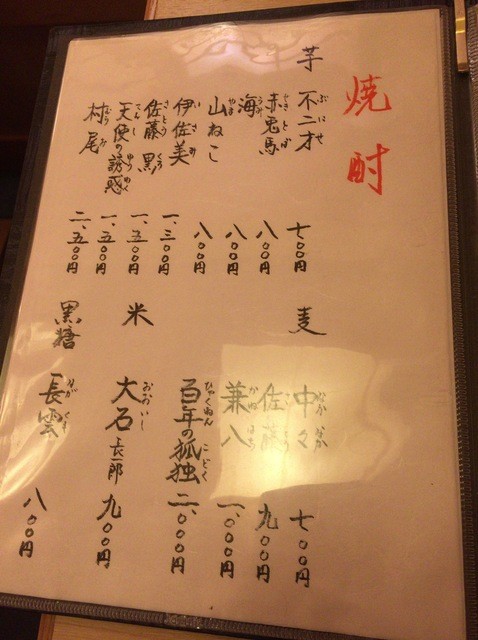 焼酎
芋
不二才 ぶにせ 七〇〇円
赤兎馬 せきとば 八〇〇円
海 うみ 八〇〇円
山ねこ やま 八〇〇円
伊佐美 いさみ 一、三〇〇円
佐藤 黒 さとう くろ 一、五〇〇円
天使の誘惑 てんし ゆうわく 一、五〇〇円
村尾 むらお 二、五〇〇円
麦
中々 なかなか 七〇〇円
佐藤 さとう 九〇〇円
兼八 かねはち 一、〇〇〇円
百年の孤独 ひゃくねん こどく 二、〇〇〇円
米
大石 長一郎 おおいし 九〇〇円
黒糖
長雲 ながくも 八〇〇円